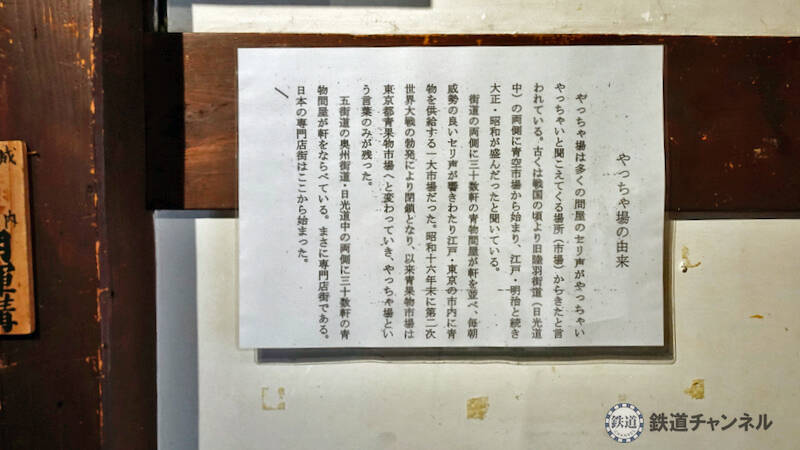 やっちゃ場の由来
やっちゃ場は多くの問屋のセリ声がやっちゃい
やっちゃいと聞こえてくる場所(市場)からきたと言
われている。古くは戦国の頃より旧陸羽街道(日光道
中)の両側に青空市場から始まり、江戸・明治と続き
大正・昭和が盛んだったと聞いている。
街道の両側に三十数軒の青物問屋が軒を並べ、毎朝
威勢の良いセリ声が響きわたり江戸・東京の市内に青
物を供給する一大市場だった。昭和十六年末に第二次
世界大戦の勃発により閉鎖となり、以来青果物市場は
東京都青果物市場へと変わっていき、やっちゃ場とい
う言葉のみが残った。
五街道の奥州街道・日光道中の両側に三十数軒の青
物問屋が軒をならべている。まさに専門店街である。
日本の専門店街はここから始まった。
城
内
鉄道
鉄道チャンネル